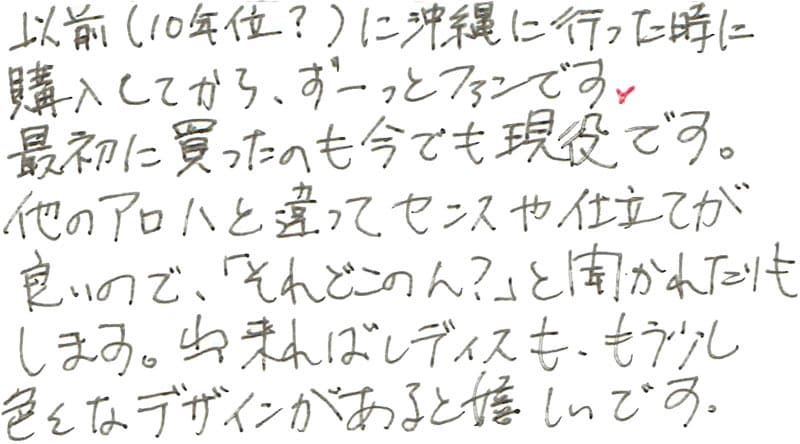 以前(10年位?)に沖縄に行った時に
購入してから、ずーっとファンです♥
最初に買ったのも今でも現役です。
他のアロハと違ってセンスや仕立てが
良いので、「それどこのん?」と聞かれたりも
します。出来ればレディスも、もう少し
色々なデザインがあると嬉しいです。